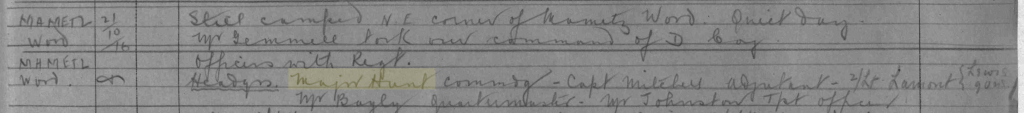 MAMETZ 21/10/16 Still camped N.E. corner of Mametz Wood. Quiet day.
Wood Mr Gemmell took over command of D Coy.
MAMETZ Officers with Regt.
Wood. Headqrs. Major Hunt commdg - Capt Mitchell adjutant - 2/Lt Lamont (Lewis guns)
Mr Bagly Quartermaster - Mr Johnston Tpt officer